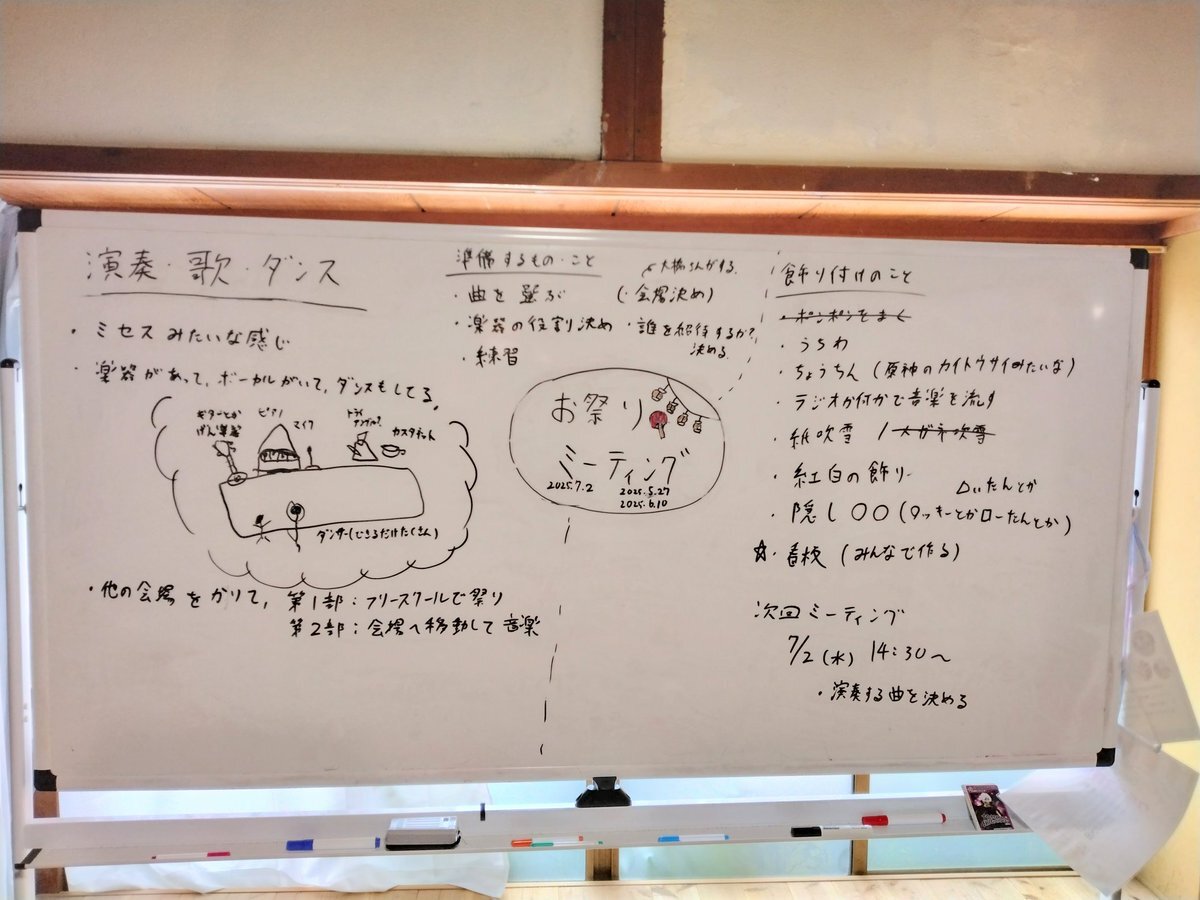 演奏・歌・ダンス
・ミセスみたいな感じ
・楽器があって、ボーカルがいて、ダンスもしてる。
ギターとか
げん楽器
ピアノ
マイク
トライアングル?
カスタネット
ダンサー(できるだけたくさん)
・他の会場をかりて、第1部:フリースクールで祭り
第2部:会場へ移動して音楽
準備するもの・こと
・曲を選ぶ
・楽器の役割決め
・練習
大橋さんがする。
(・会場決め)
・誰を招待するか?
決める。
お祭り
ミーティング
2025.7.2
2025.5.27
2025.6.10
飾り付けのこと
・ポンポンをまく
・うちわ
・ちょうちん(原神のカイトウサイみたいな)
・ラジオか何かで音楽を流す
・紙吹雪 / メガネ吹雪
・紅白の飾り
・隠し〇〇(
ローたんとか)
☆・看板(みんなで作る)
次回ミーティング
7/2(水) 14:30〜
・演奏する曲を決める